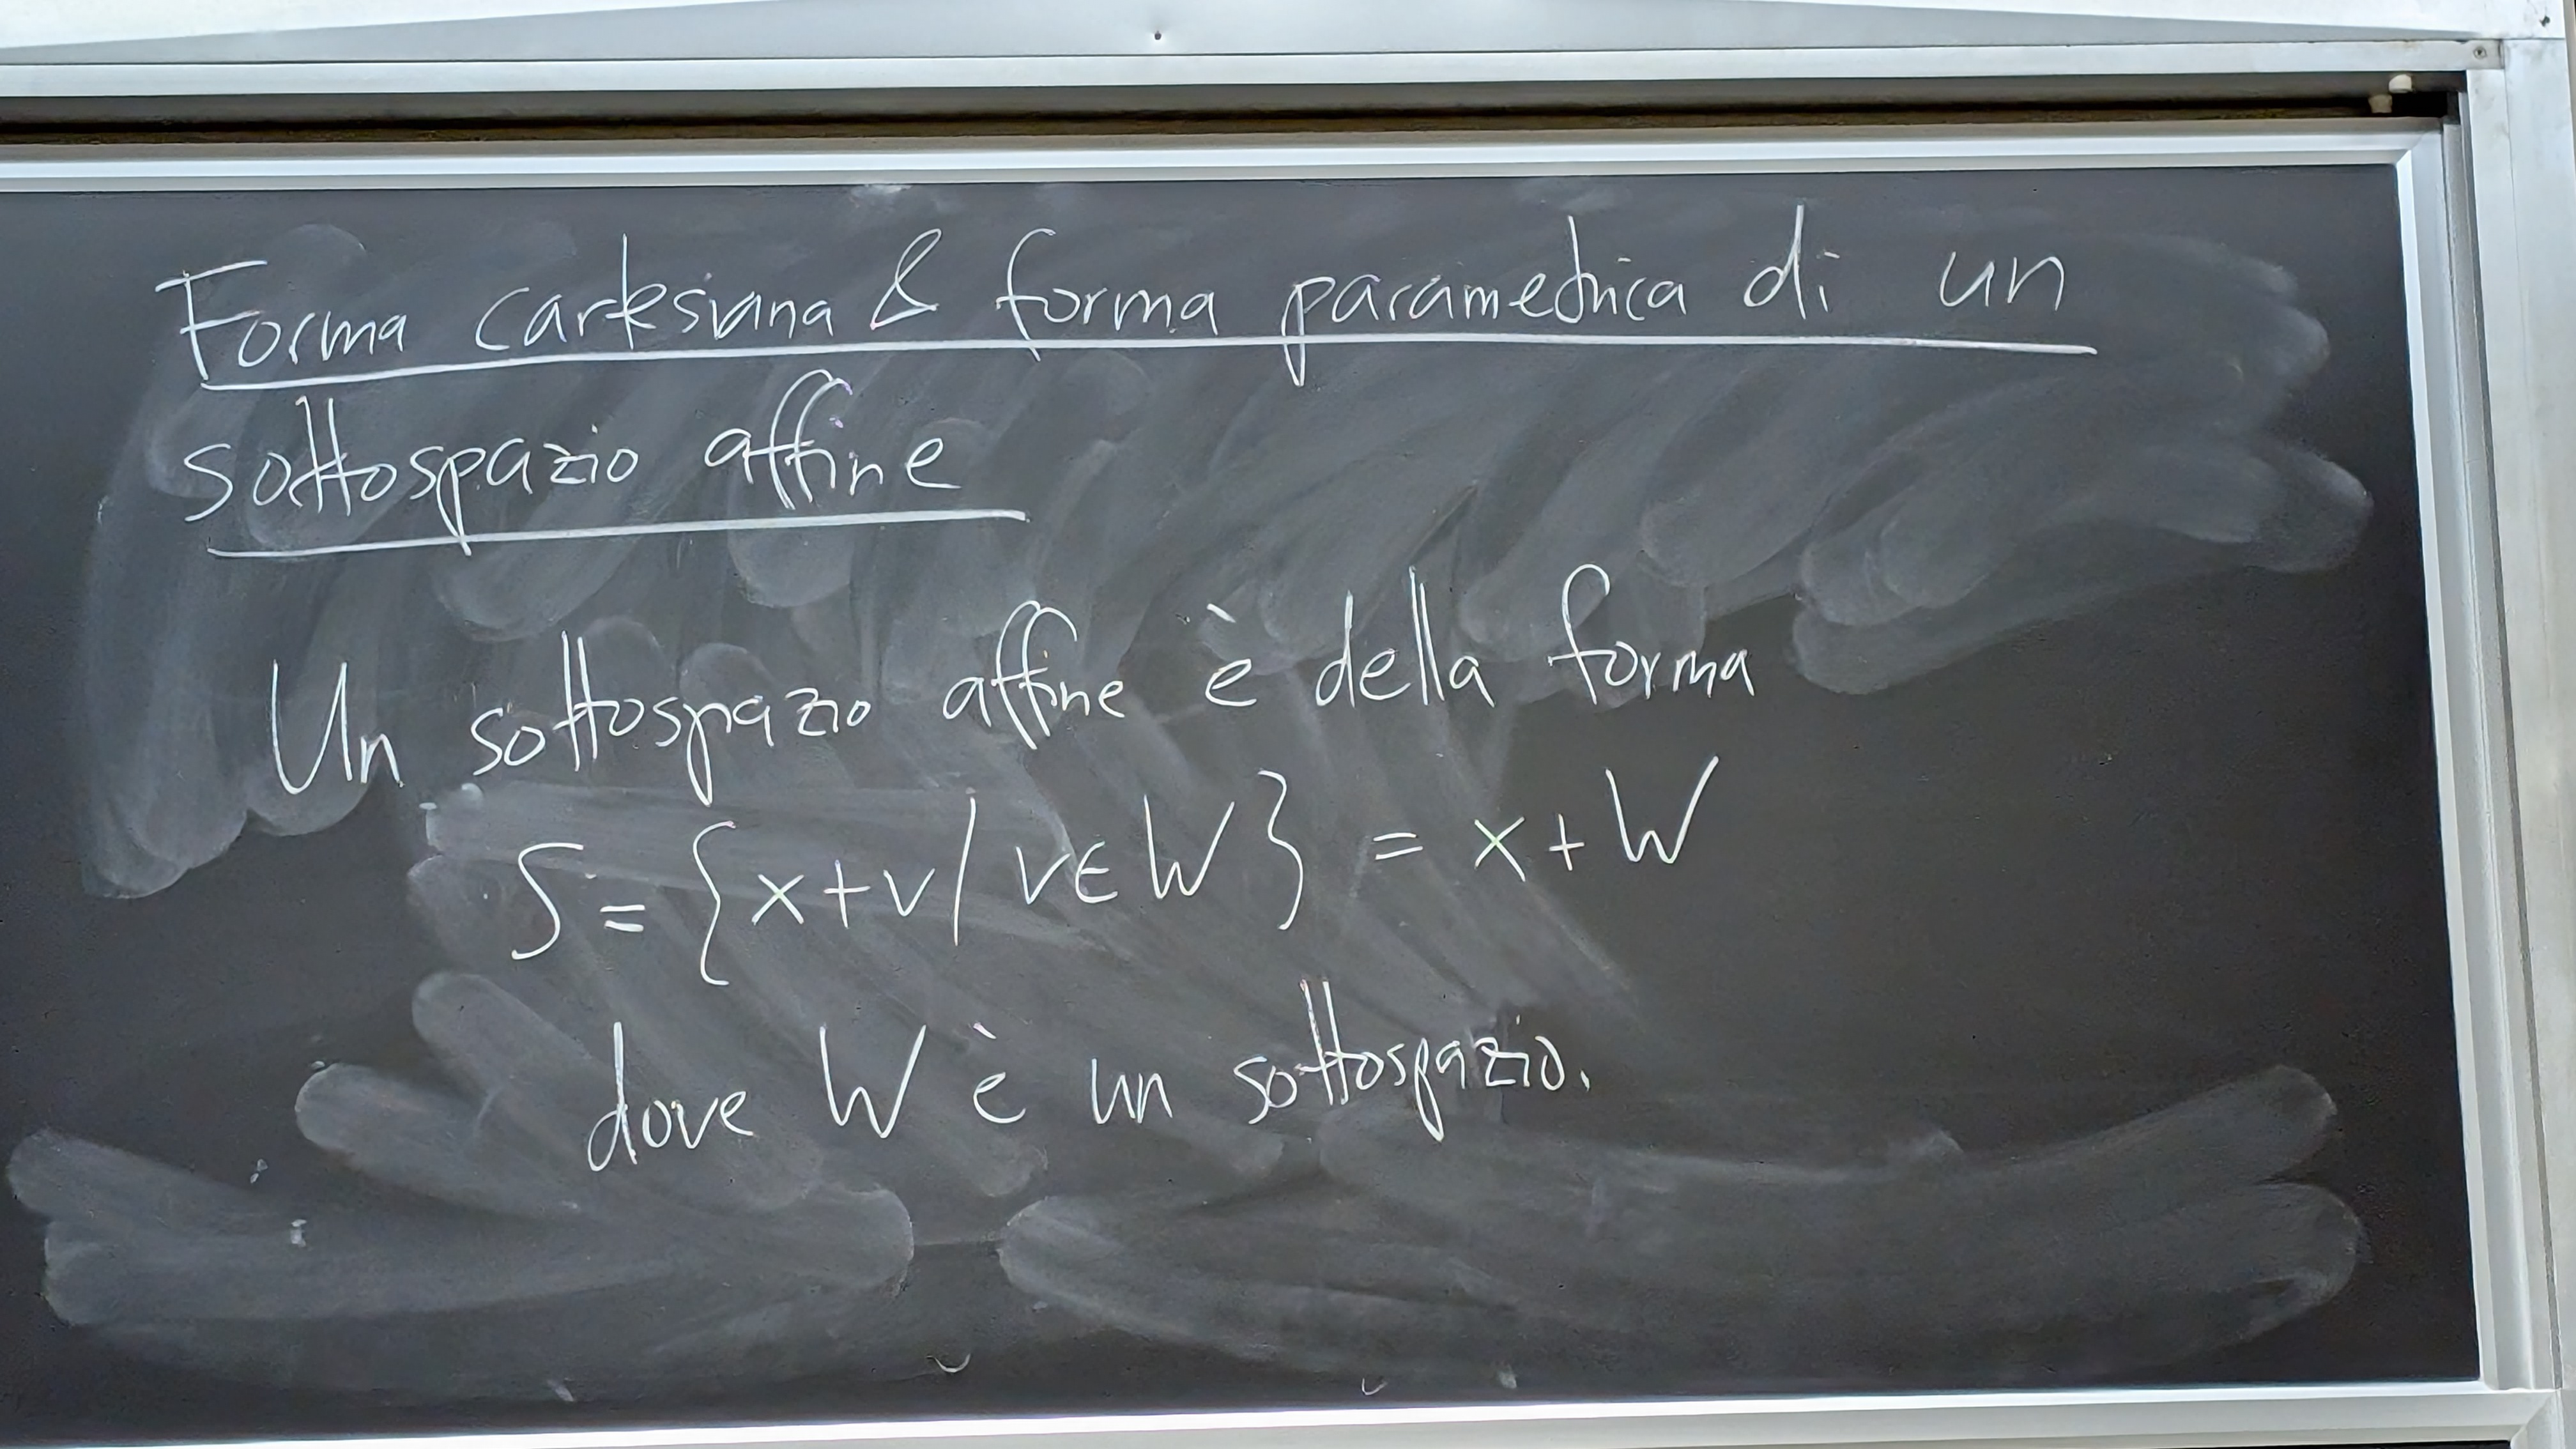 Forma cartesiana & forma parametrica di un
sottospazio affine
Un sottospazio affine è della forma
S = { x+v | v ∈ W } = x + W
dove W è un sottospazio.